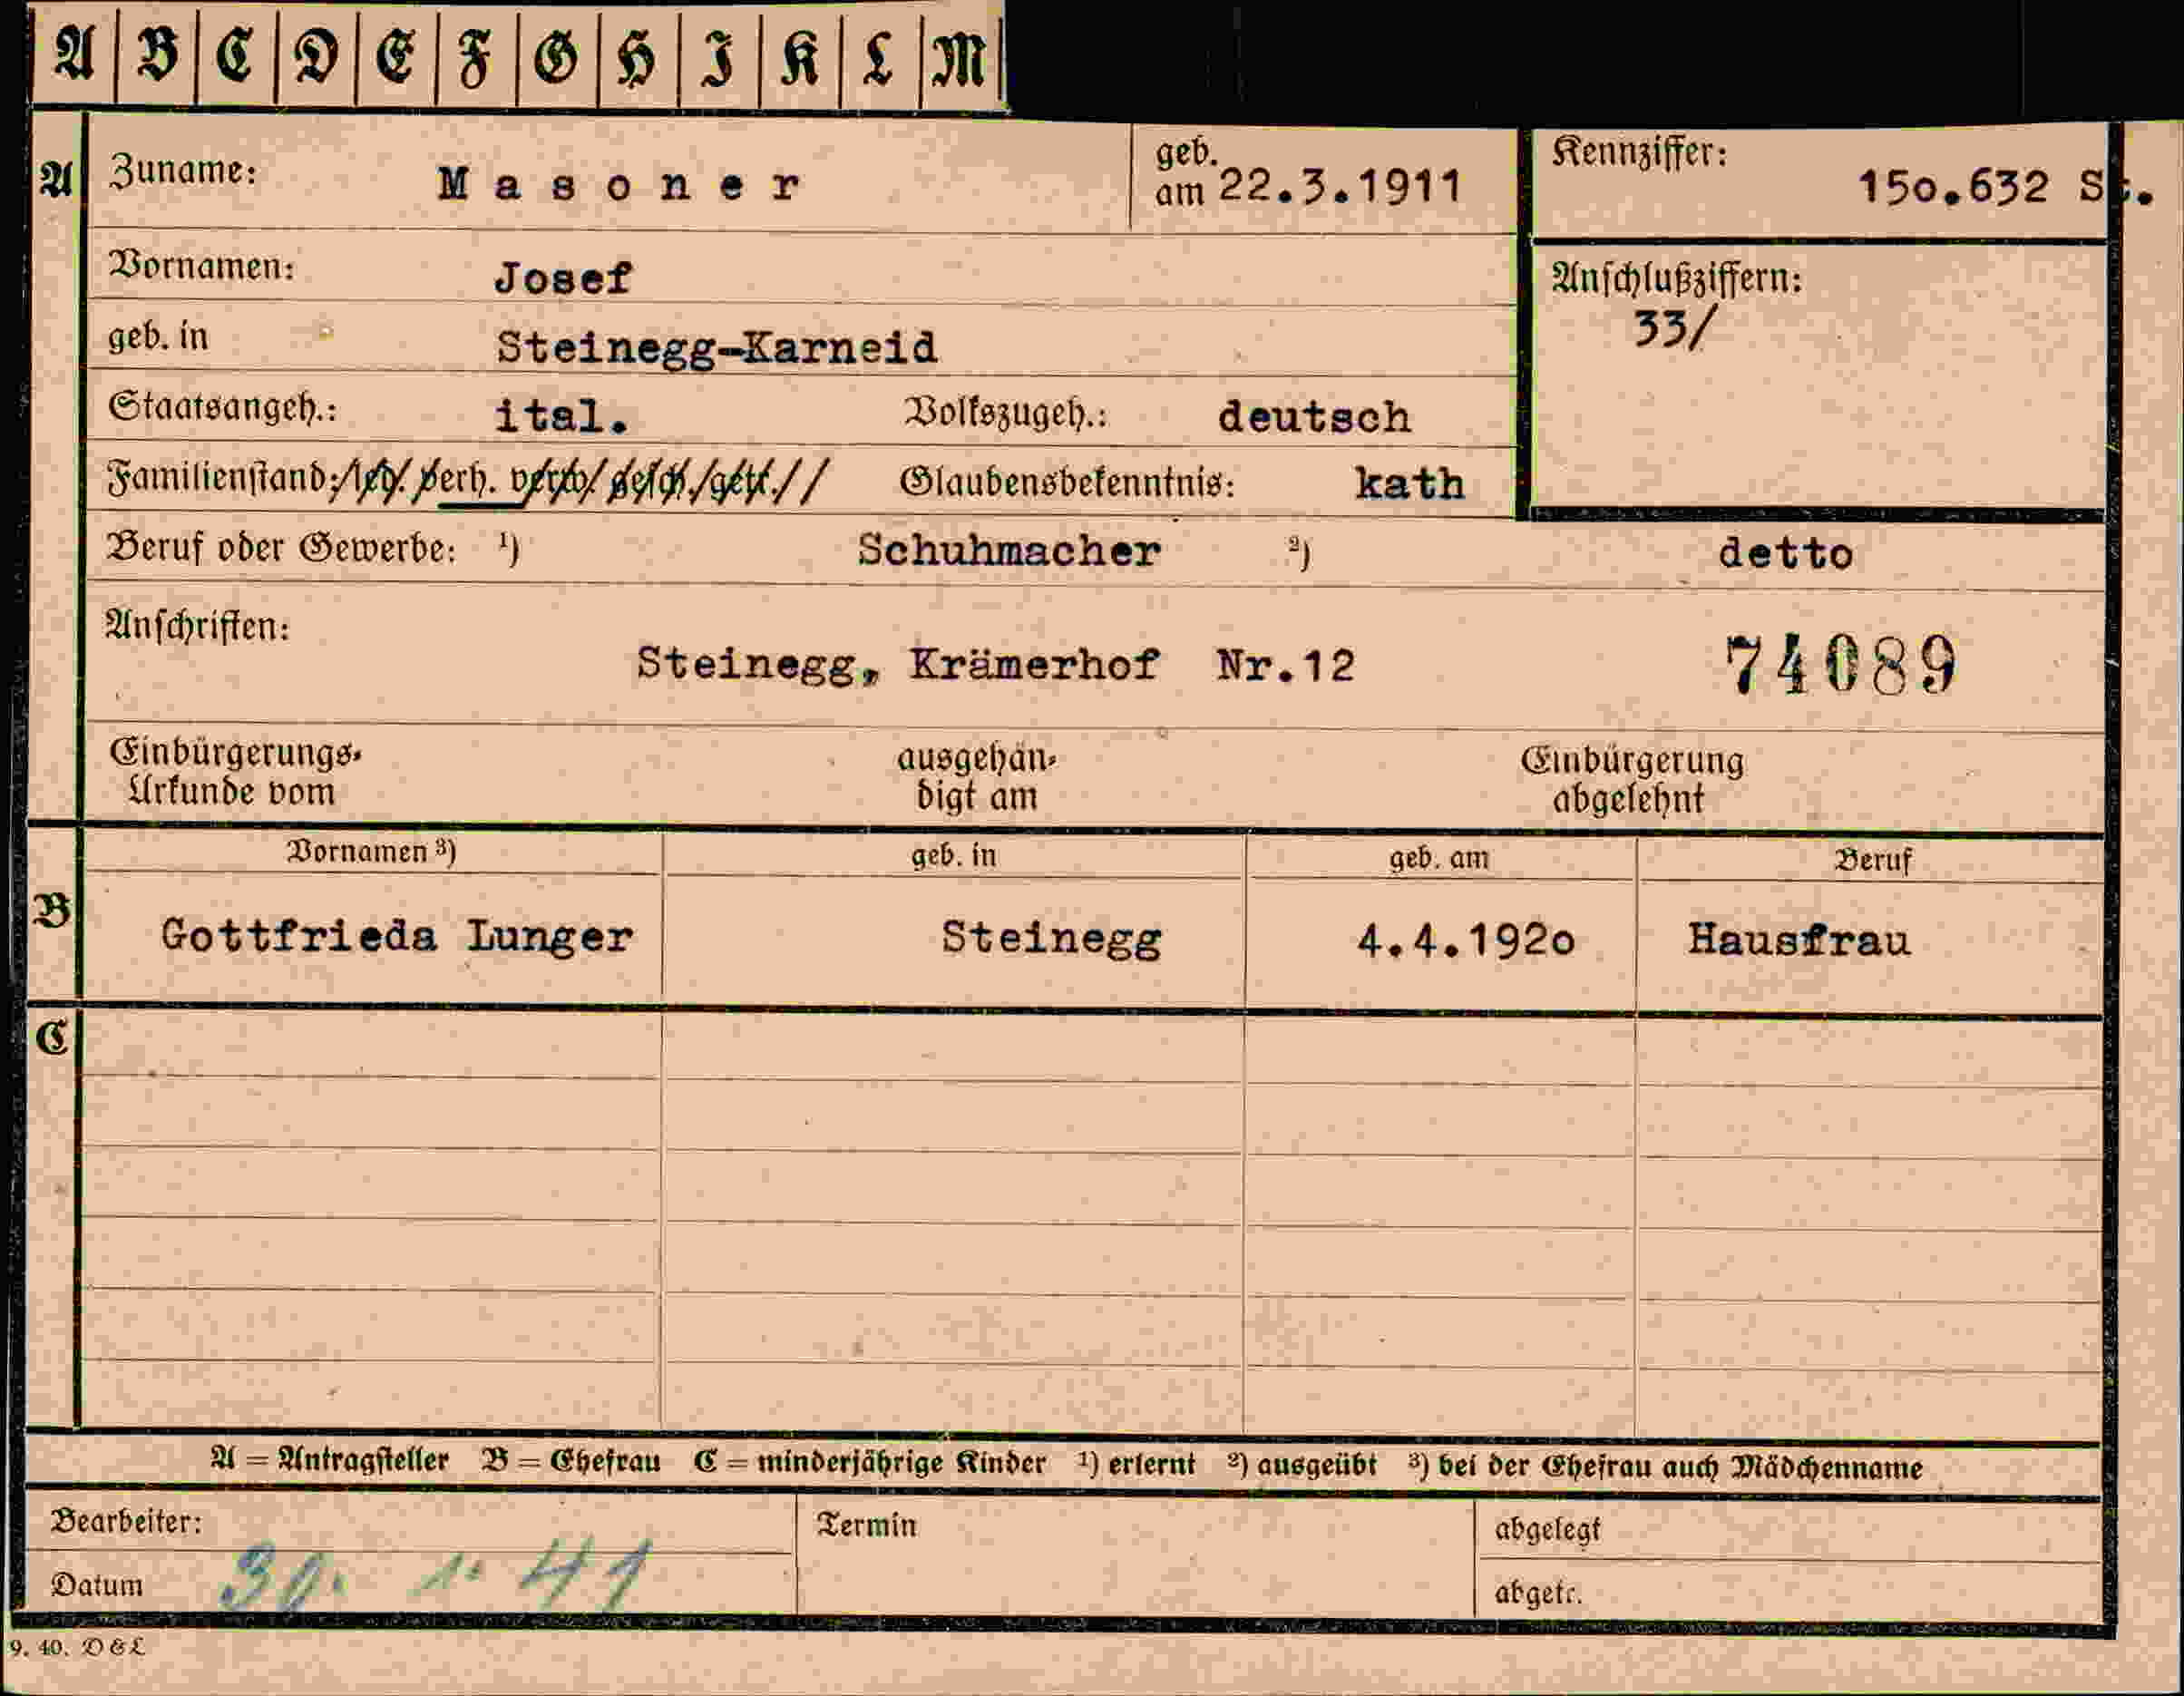 A B C D E F G H I K L M
A Zuname: Masoner geb. am 22.3.1911 Kennziffer: 15o.632 St.
Vornamen: Josef Anschlußziffern: 33/
geb. in Steinegg-Karneid
Staatsangeh.: ital. Volkszugeh.: deutsch
Familienstand: led. verh. verw. gesch. getr. Glaubensbekenntnis: kath
Beruf oder Gewerbe: 1) Schuhmacher 2) detto
Anschriften: Steinegg, Krämerhof Nr.12 74089
Einbürgerungs-Urkunde vom ausgehändigt am Einbürgerung abgelehnt
Vornamen 3) geb. in geb. am Beruf
B Gottfrieda Lunger Steinegg 4.4.192o Hausfrau
C
A = Antragsteller B = Ehefrau C = minderjährige Kinder 1) erlernt 2) ausgeübt 3) bei der Ehefrau auch Mädchenname
Bearbeiter: Termin abgelegt
Datum 30. 1. 41 abgetr.
9. 40. D & L